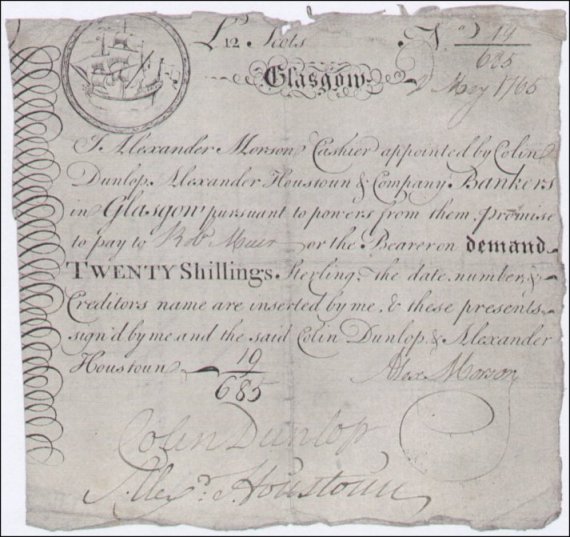 £12 Scots
19
685
Glasgow
2 May 1765
I Alexander Morson Cashier appointed by Colin
Dunlop, Alexander Houstoun & Company Bankers
in Glasgow pursuant to powers from them Promise
to pay to Robt Muir or the Bearer on demand
TWENTY Shillings Sterling, the date, number, &
Creditors name are inserted by me, & these presents
sign'd by me and the said Colin Dunlop, & Alexander
Houstoun
19
685
Alex. Morson
Colin Dunlop
Alexr. Houstoun